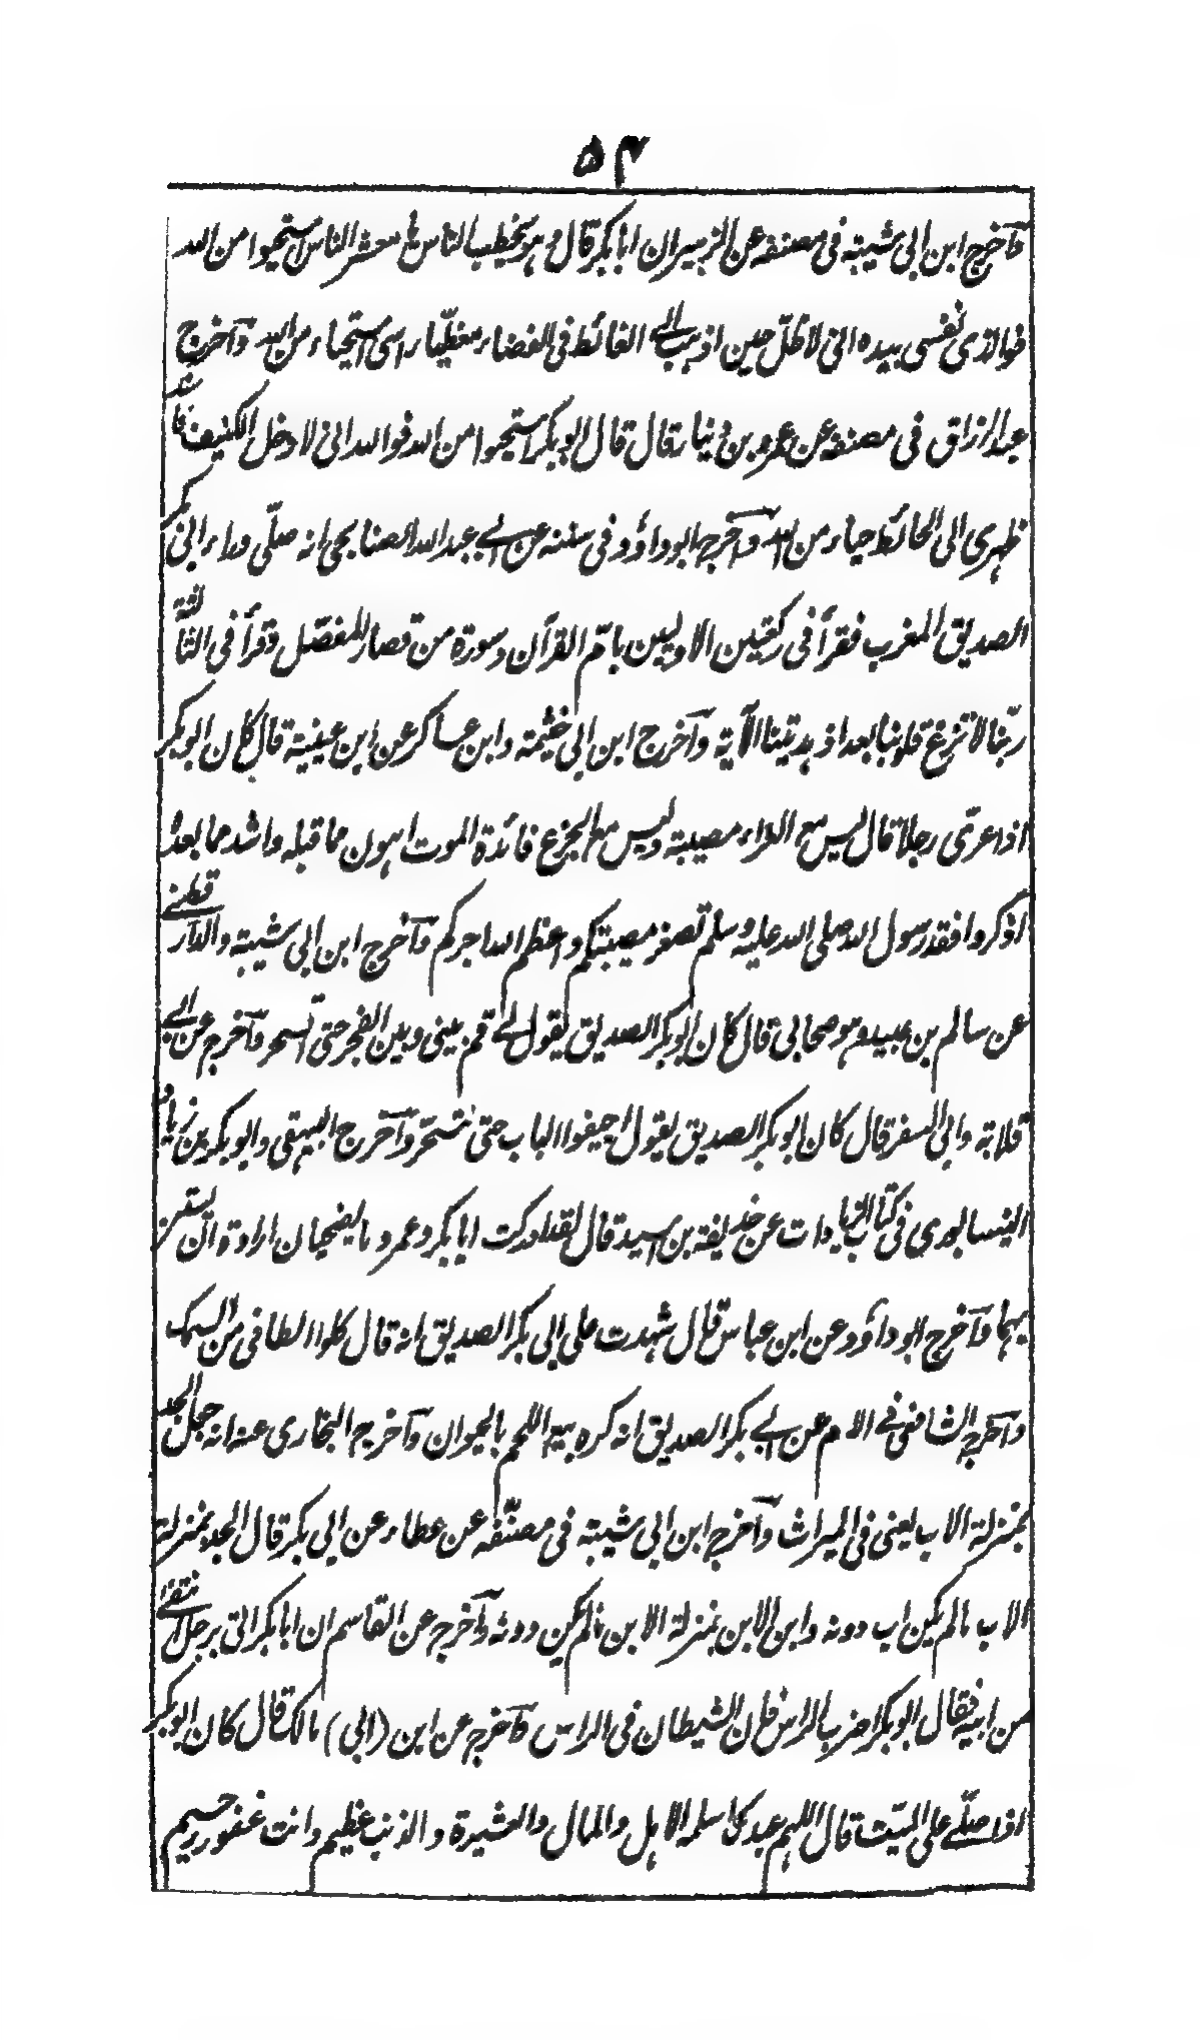 ۵۴
وآخرج ابن ابی شیبته فی مصنفه عن الزبیر ان ابا بکر قال وهو یخطب الناس یا معشر الناس استحیوا من الله
فوالذی نفسی بیده انی لاظل حین اذهب الی الغائط فی الفضاء مغطّیا راسی استحیاء من الله وآخرج
عبد الرزاق فی مصنفه عن عمرو بن دینار قال قال ابو بکر استحیوا من الله فوالله انی لادخل الکنیف فاسند
ظهری الی الحائط حیاء من الله وآخرج ابو داؤد فی سننه عن ابی عبد الله الصنابحی انه صلّی وراء ابی بکر
الصدیق المغرب فقرأ فی رکعتین الاولیین بامّ القرآن وسورة من قصار المفصّل وقرأ فی الثالثة
ربّنا لا تزغ قلوبنا بعد اذ هدیتنا الآیة وآخرج ابن ابی خثیمه وابن عساکر عن ابن عیینة قال کان ابو بکر
اذا عزّی رجلا قال لیس مع العزاء مصیبته ولیس مع الجزع فائدة الموت اهون ما قبله واشد ما بعده
اذکروا فقد رسول الله صلی الله علیه وسلم تصغر مصیبتکم واعظم الله اجرکم وآخرج ابن ابی شیبته والدار قطنی
عن سالم بن عبید وهو صحابی قال کان ابو بکر الصدیق یقول لی قم بینی وبین الفجر حتی تسحر وآخرج عن ابی
قلابة وابی السفر قال کان ابو بکر الصدیق یقول اجیفوا الباب حتی نتسحّر وآخرج البیهقی وابو بکر بن زیاد
النیسابوری فی کتاب الزیادات عن حذیفة بن اسید قال لقد ادرکت ابا بکر وعمر وما یضحیان ارادة ان یستن
بهما وآخرج ابو داؤد عن ابن عباس قال شهدت علی ابی بکر الصدیق انه قال کلوا الطافی من السمک
وآخرج الشافعی فی الام عن ابی بکر الصدیق انه کره بیع اللحم بالحیوان وآخرج البخاری عنه انه جعل الجد
بمنزلة الاب یعنی فی المیراث وآخرج ابن ابی شیبته فی مصنّفه عن عطاء عن ابی بکر قال الجد بمنزلة
الاب مالم یکن اب دونه وابن الابن بمنزلة الابن مالم یکن دونه وآخرج عن القاسم ان ابا بکر اتی برجل انتفی
من ابیه فقال ابو بکر اضرب الراس فان الشیطان فی الراس وآخرج عن ابن (ابی) مالک قال کان ابو بکر
اذا صلّی علی المیّت قال اللهم عبدک اسلمه الاهل والمال والعشیرة والذنب عظیم وانت غفور رحیم